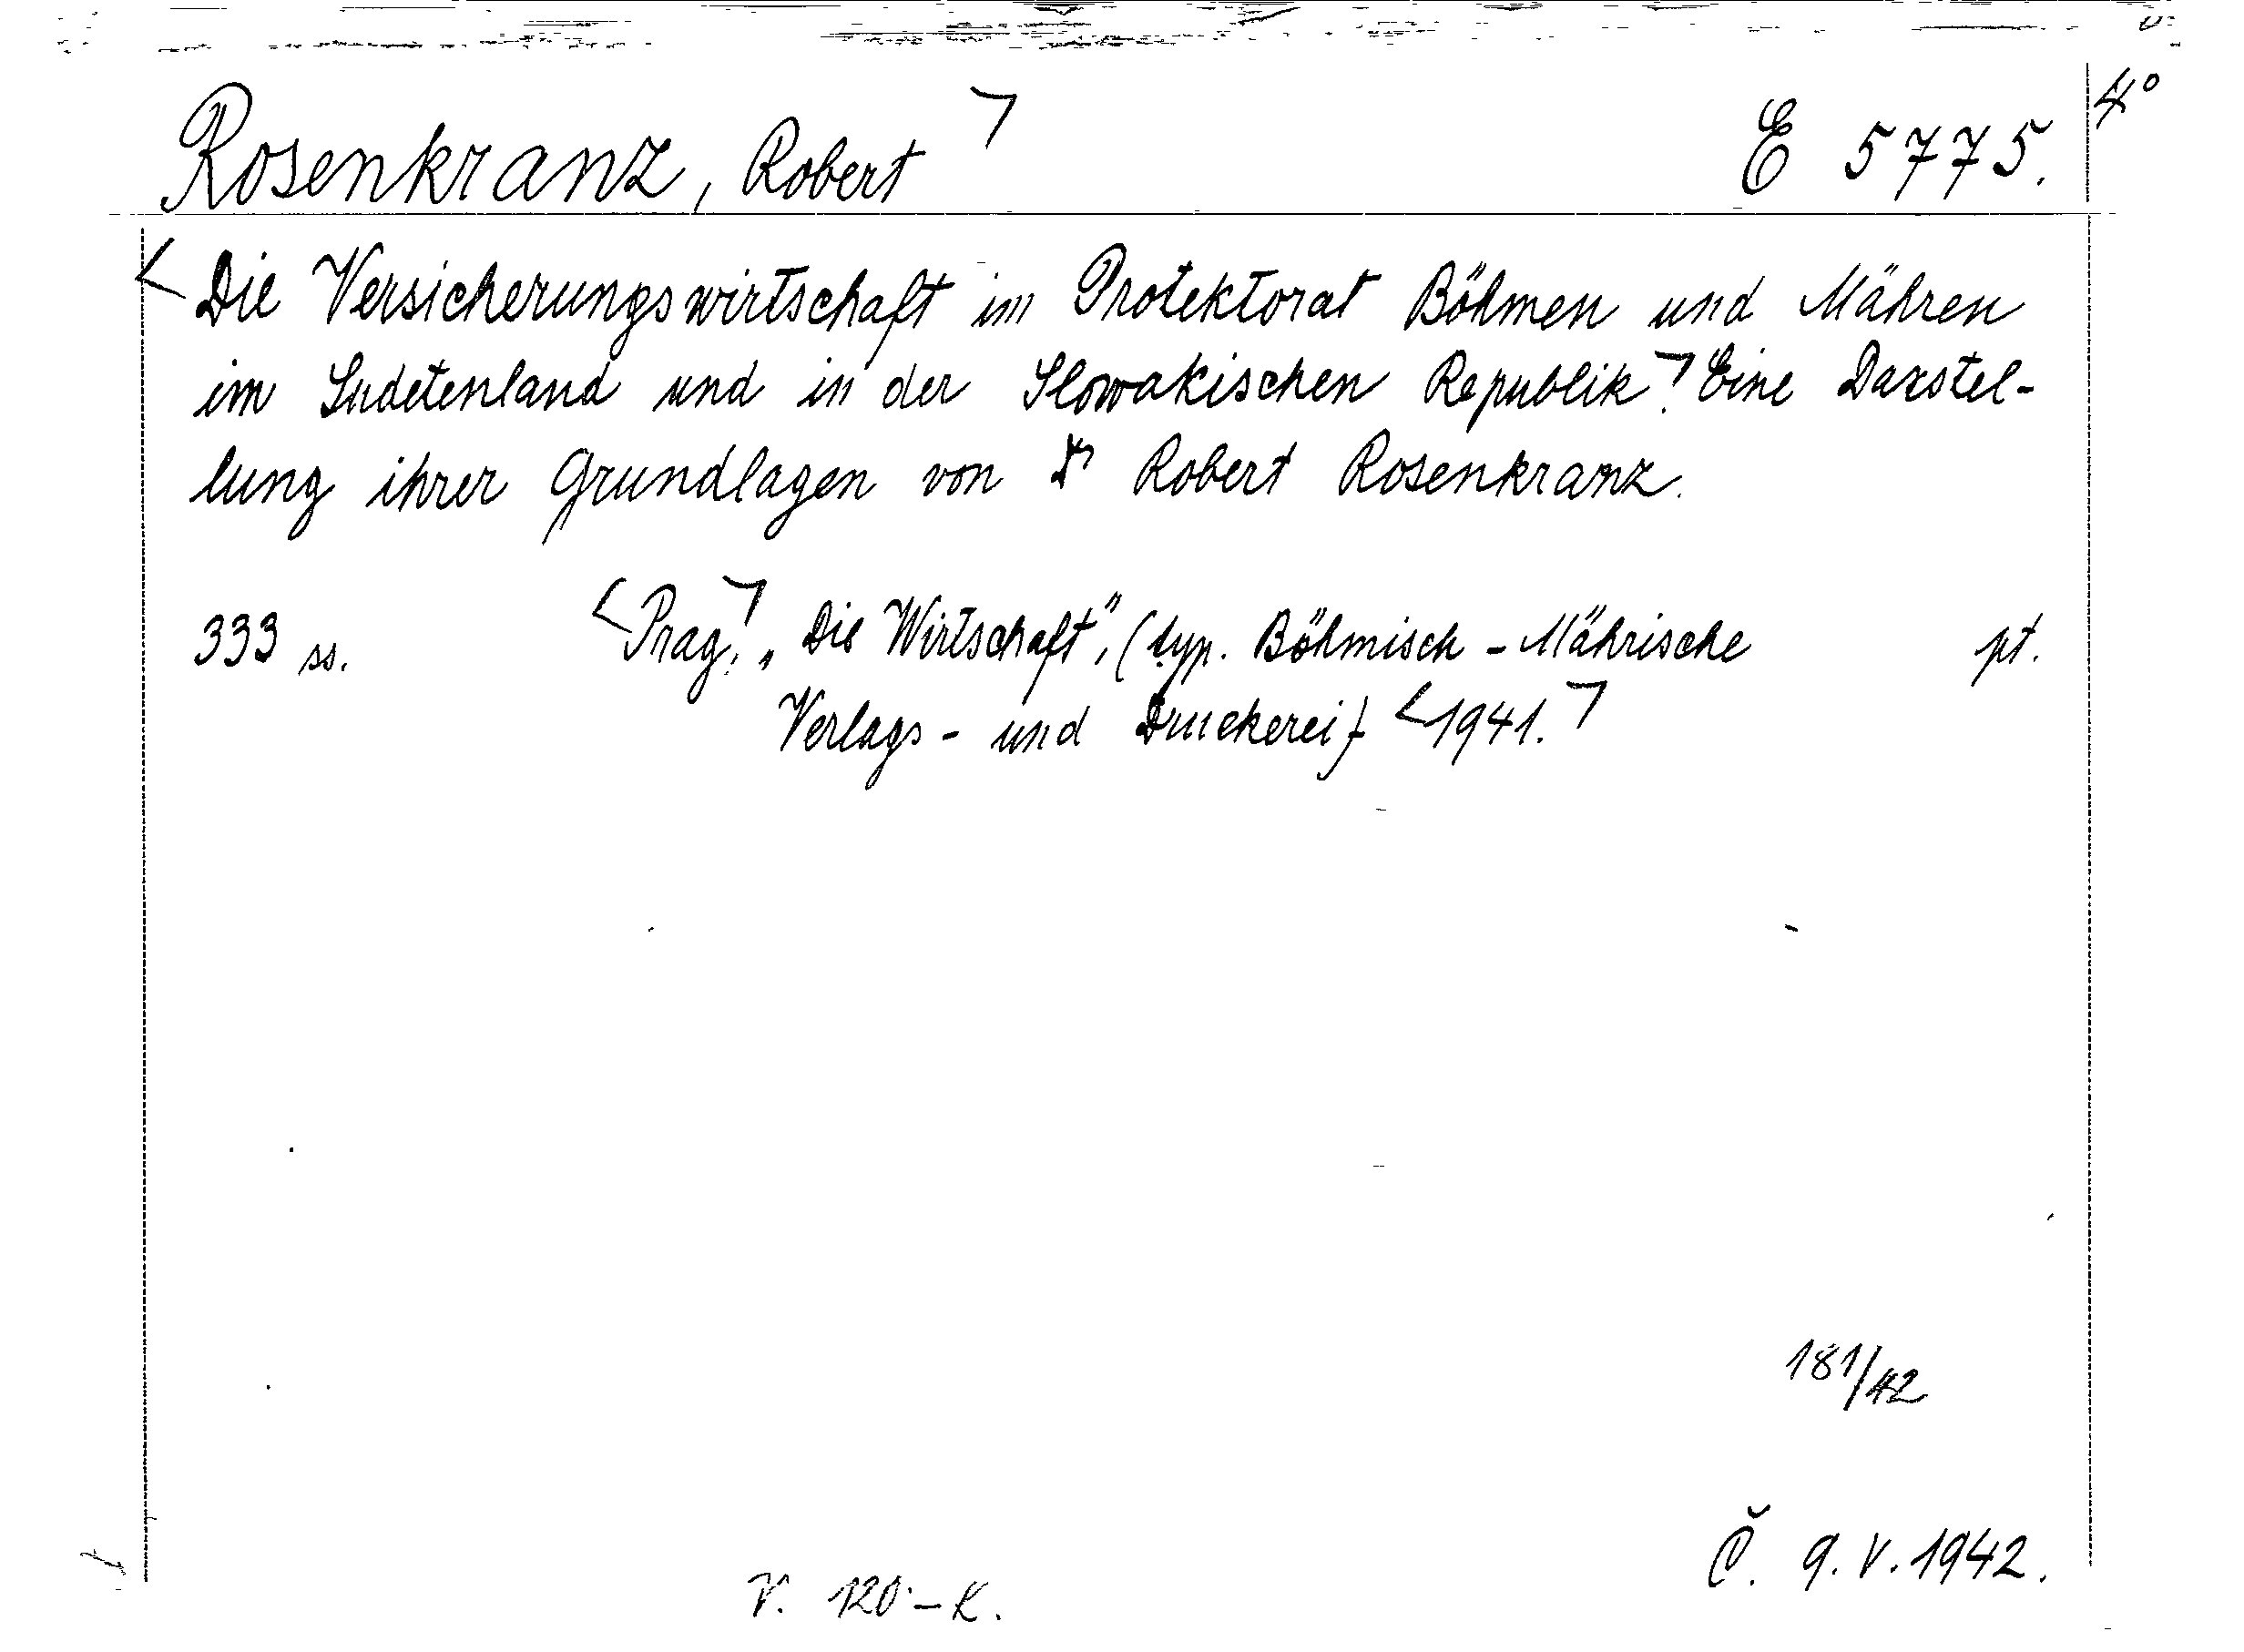 Rosenkranz, Robert E 5775. 4°
Die Versicherungswirtschaft im Protektorat Böhmen und Mähren
im Sudetenland und in der Slowakischen Republik. Eine Darstel-
lung ihrer Grundlagen von Dr Robert Rosenkranz.
333 ss. Prag, „Die Wirtschaft", (typ. Böhmisch - Mährische pt.
Verlags - und Druckerei) 1941.
181/42
Č. 9. V. 1942.
V. 120·- K.